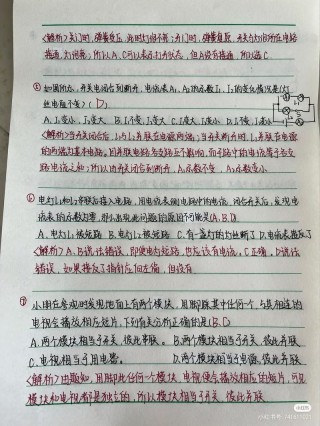 <解析>关门时,弹簧变压,此时灯泡不亮;开门时,弹簧复原,开关与灯泡所在电路
接通,灯泡亮;所以A、C可以表示打开状态,但A没有接通,所以选C
如图所示,开关闭合到断开,电流表A1、A2的示数I1、I2的变化情况是(灯
丝电阻不变)(D)
A.I1变小,I2变大 B.I1不变,I2变大 C.I1变大,I2变小 D.I1不变,I2变小
<解析>当开关闭合后,L1与L2并联在电源两端;当开关断开时,
的两端为基本电路。因并联电路各支路互不影响,而干路中的电流等于各支
路电流之和;所以由开关闭合到断开,A1示数不变,A2示数变小
⑥ 电灯L1和L2串联后接入电路,用电流表测电路中的电流,闭合开关后,发现电
流表的示数为零,那么出现此问题的原因不可能是(A,B,D)
A.电灯L1被短路 B.电灯L2被短路 C.有一盏灯的灯丝断了 D.电流表接反了
<解析>A、B说法错误,即使电灯短路,也应该有电流,C正确,D说法
错误,如果接反了指针应向左偏,但没有
⑦ 小明在参观时发现地面上有两个模块,用脚踩其中任何一个,与其相连的
电视会播放相应短片,下列有关分析正确的是(B,D)
A.两个模块相当于开关,彼此串联。 B.两个模块相当于开关,彼此并联
C.电视相当于用电器。 D.两个模块相当于电源,彼此并联
<解析>由题知,用脚踩任何一个模块,电视便会播放相应的短片,可见
模块和电视都是独立的,所以模块相当于开关,彼此并联
小红书